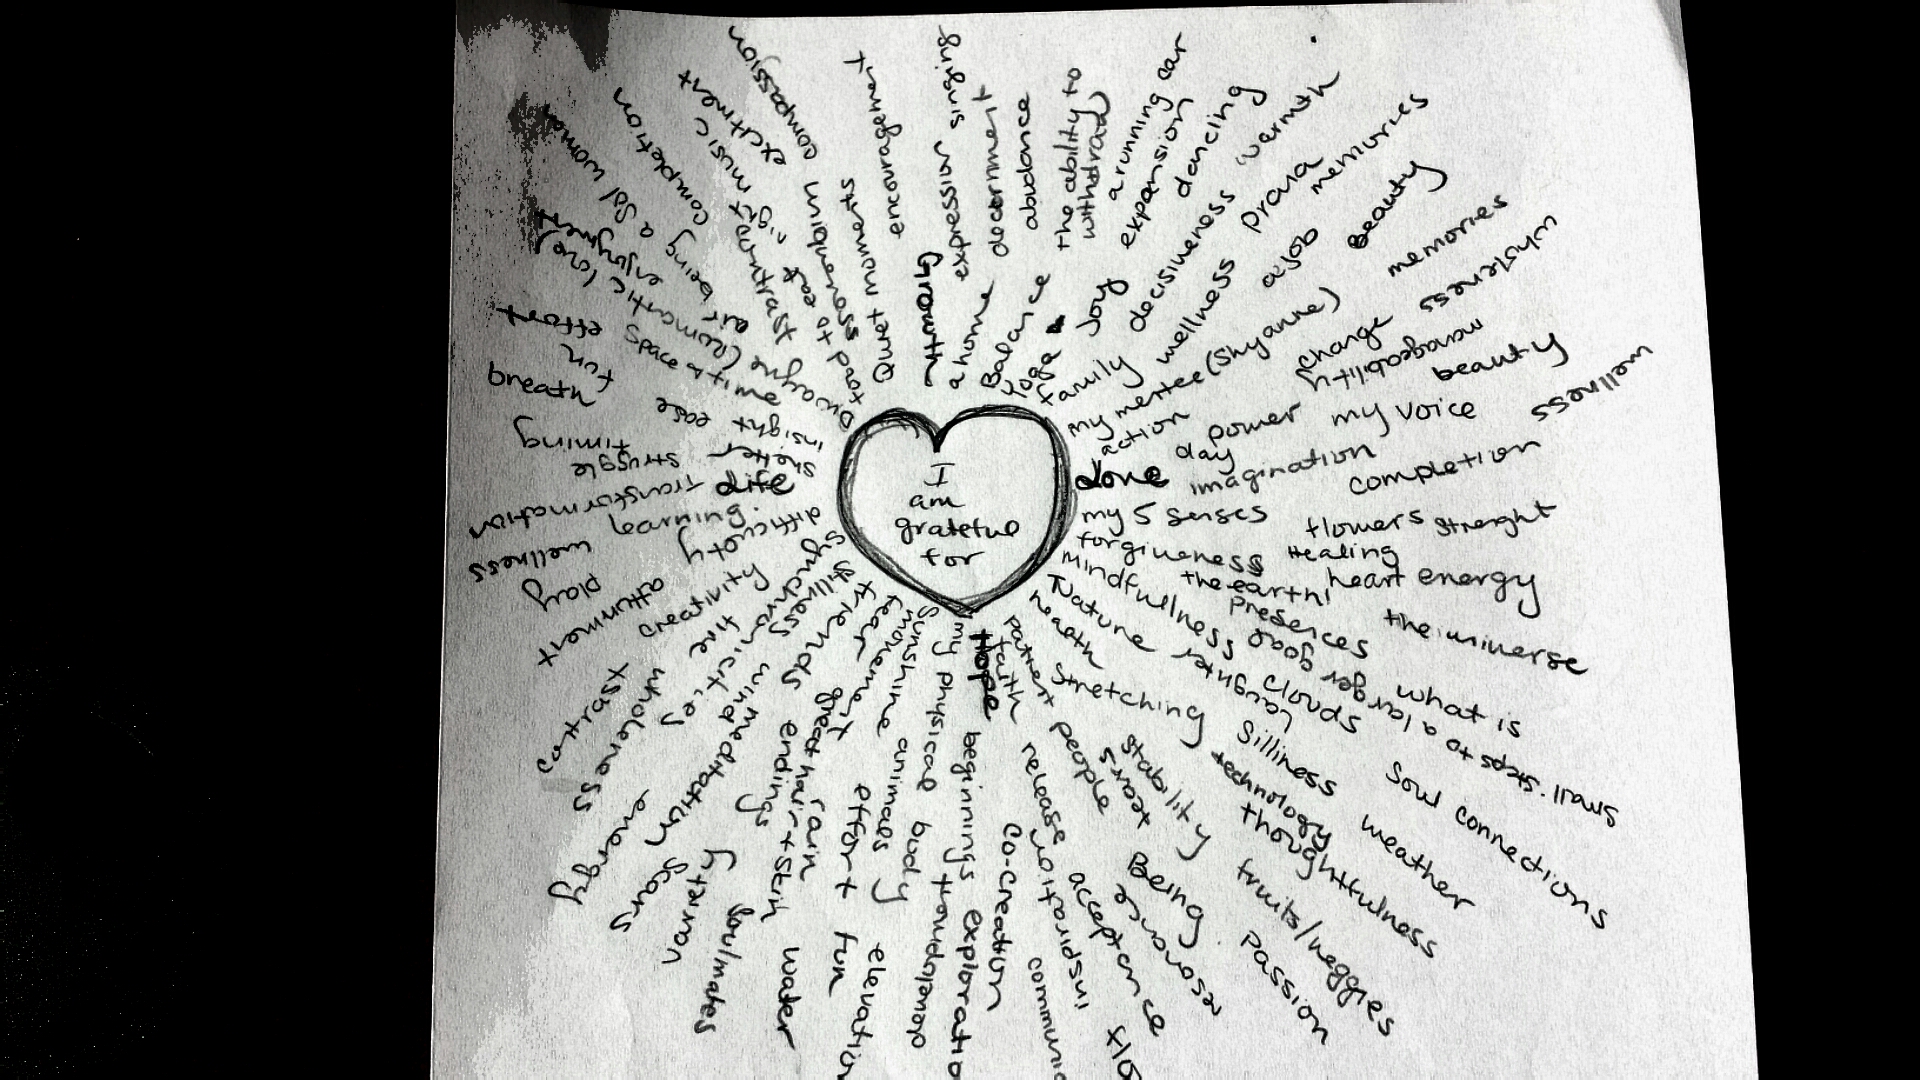 I
am
grateful
for
Growth
expression
singing
a home
determent
abudance
Balance
the ability to
withdraw
yoga
Joy
expansion
a running car
dancing
family
decisiveness
warmth
wellness
prana
memories
a job
Beauty
my mentee (Shyanne)
memories
change
wholeness
manageability
action
day
power
my voice
beauty
wellness
Love
imagination
completion
my 5 senses
flowers
strenght
forgiveness
Healing
the earth!
heart energy
mindfullness
presences
the universe
Nature
laughter
clouds
small steps to a larger goal
what is
health
stretching
Silliness
technology
thoughtfulness
weather
Soul connections
people
stability
fruits/veggies
tears
Being
passion
resource
faith
release
inspiration
acceptance
Hope
beginnings
exploratio
Co-creation
communic
my physical body
development
Sunshine
animals
movement
effort
fun
elevation
fear
great hair + skin
rain
water
friends
endings
soulmates
stillness
wind
meditation
variety
scars
synchronicities
wholeness
energy
contrast
creativity
attunment
difficulty
play
learning
wellness
Life
transformation
shelter
struggle
timing
insight
ease
breath
fun
effort
time + space
Dwayne (romantic love)
enjoyment
air
being a Sol woman
food to eat
completion
right
music
excitment
assuredness
compassion
Quiet moments
encouragement